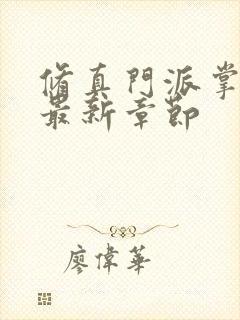 脩真門派掌
最新章節
廖偉華